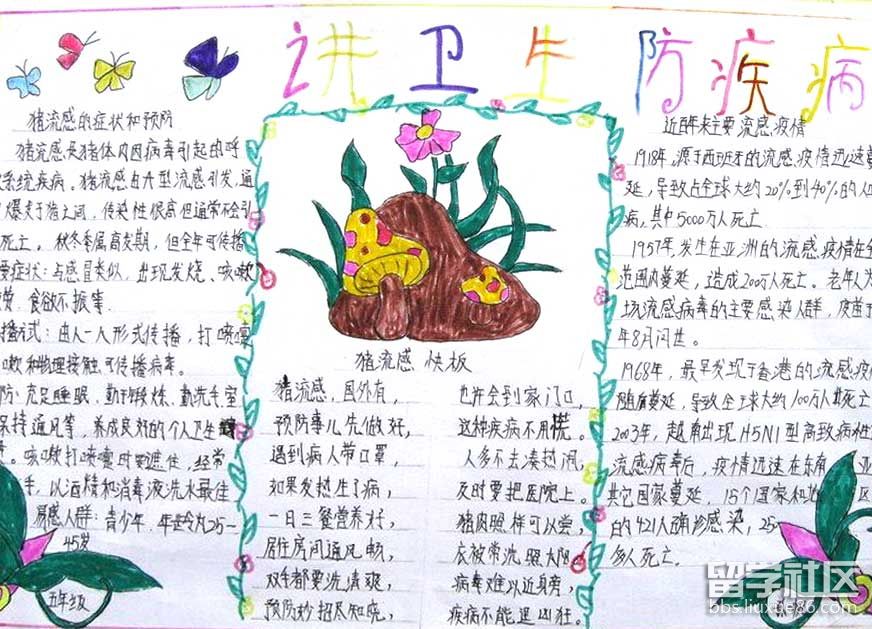 讲卫生 防疾病
猪流感的症状和预防
猪流感是猪体内因病毒引起的呼
系统疾病。猪流感由A型流感引发,通
爆発于猪之间,传染性很高但通常不会引
死亡。秋冬季属高发期,但全年可传播
要症状:与感冒类似,出现发烧、咳嗽
食欲不振等.
播方式:由人一人形式传播,打喷嚏
嗽和物理接触可传播病毒。
防:充足睡眠,勤于锻炼,勤洗手室
保持通风等,养成良好的个人卫生
。咳嗽打喷嚏时要遮住,经常
手,以酒精和消毒液洗水最佳
易感人群:青少年.年龄为25-
45岁
五年级
猪流感 快板
猪流感,国外有,
预防事儿先做好,
遇到病人带口罩,
如果发热生了病,
一日三餐营养好,
居住房间通风畅,
双手都要洗清爽,
预防妙招尽知晓,
也许会到家门口,
这种疾病不用慌。
人多不去凑热闹,
及时要把医院上。
猪肉照样可以尝,
衣被常洗照太阳
病毒难以近身旁,
疾病不能逞凶狂。
近百年来主要流感疫情
1918年,源于西班牙的流感疫情迅速蔓
延,导致占全球大约20%到40%的人
病,其中5000万人死亡.
1957年,发生在亚洲的流感疫情在全
范围内蔓延,造成200万人死亡。老年人为
场流感病毒的主要感染人群,疫苗于
年8月问世。
1968年,最早发现于香港的流感疫
随后蔓延,导致全球大约100万人死亡
2003年,越南出现H5N1型高致病性
流感病毒后,疫情迅速在东南亚
其它国家蔓延,15个国家和地区
的421人确诊感染,25
多人死亡.
留学社区
bbs.liuxue86.com